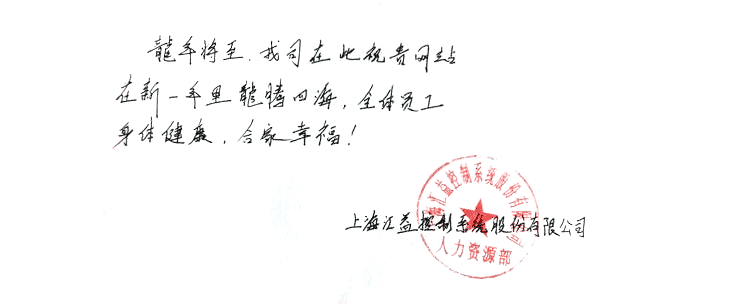 龍年将至，我司在此祝贵网站
在新一年里龍腾四海，全体员工
身体健康，合家幸福！
上海汇益控制系统股份有限公司
上海汇益控制系统股份有限公司
人力资源部